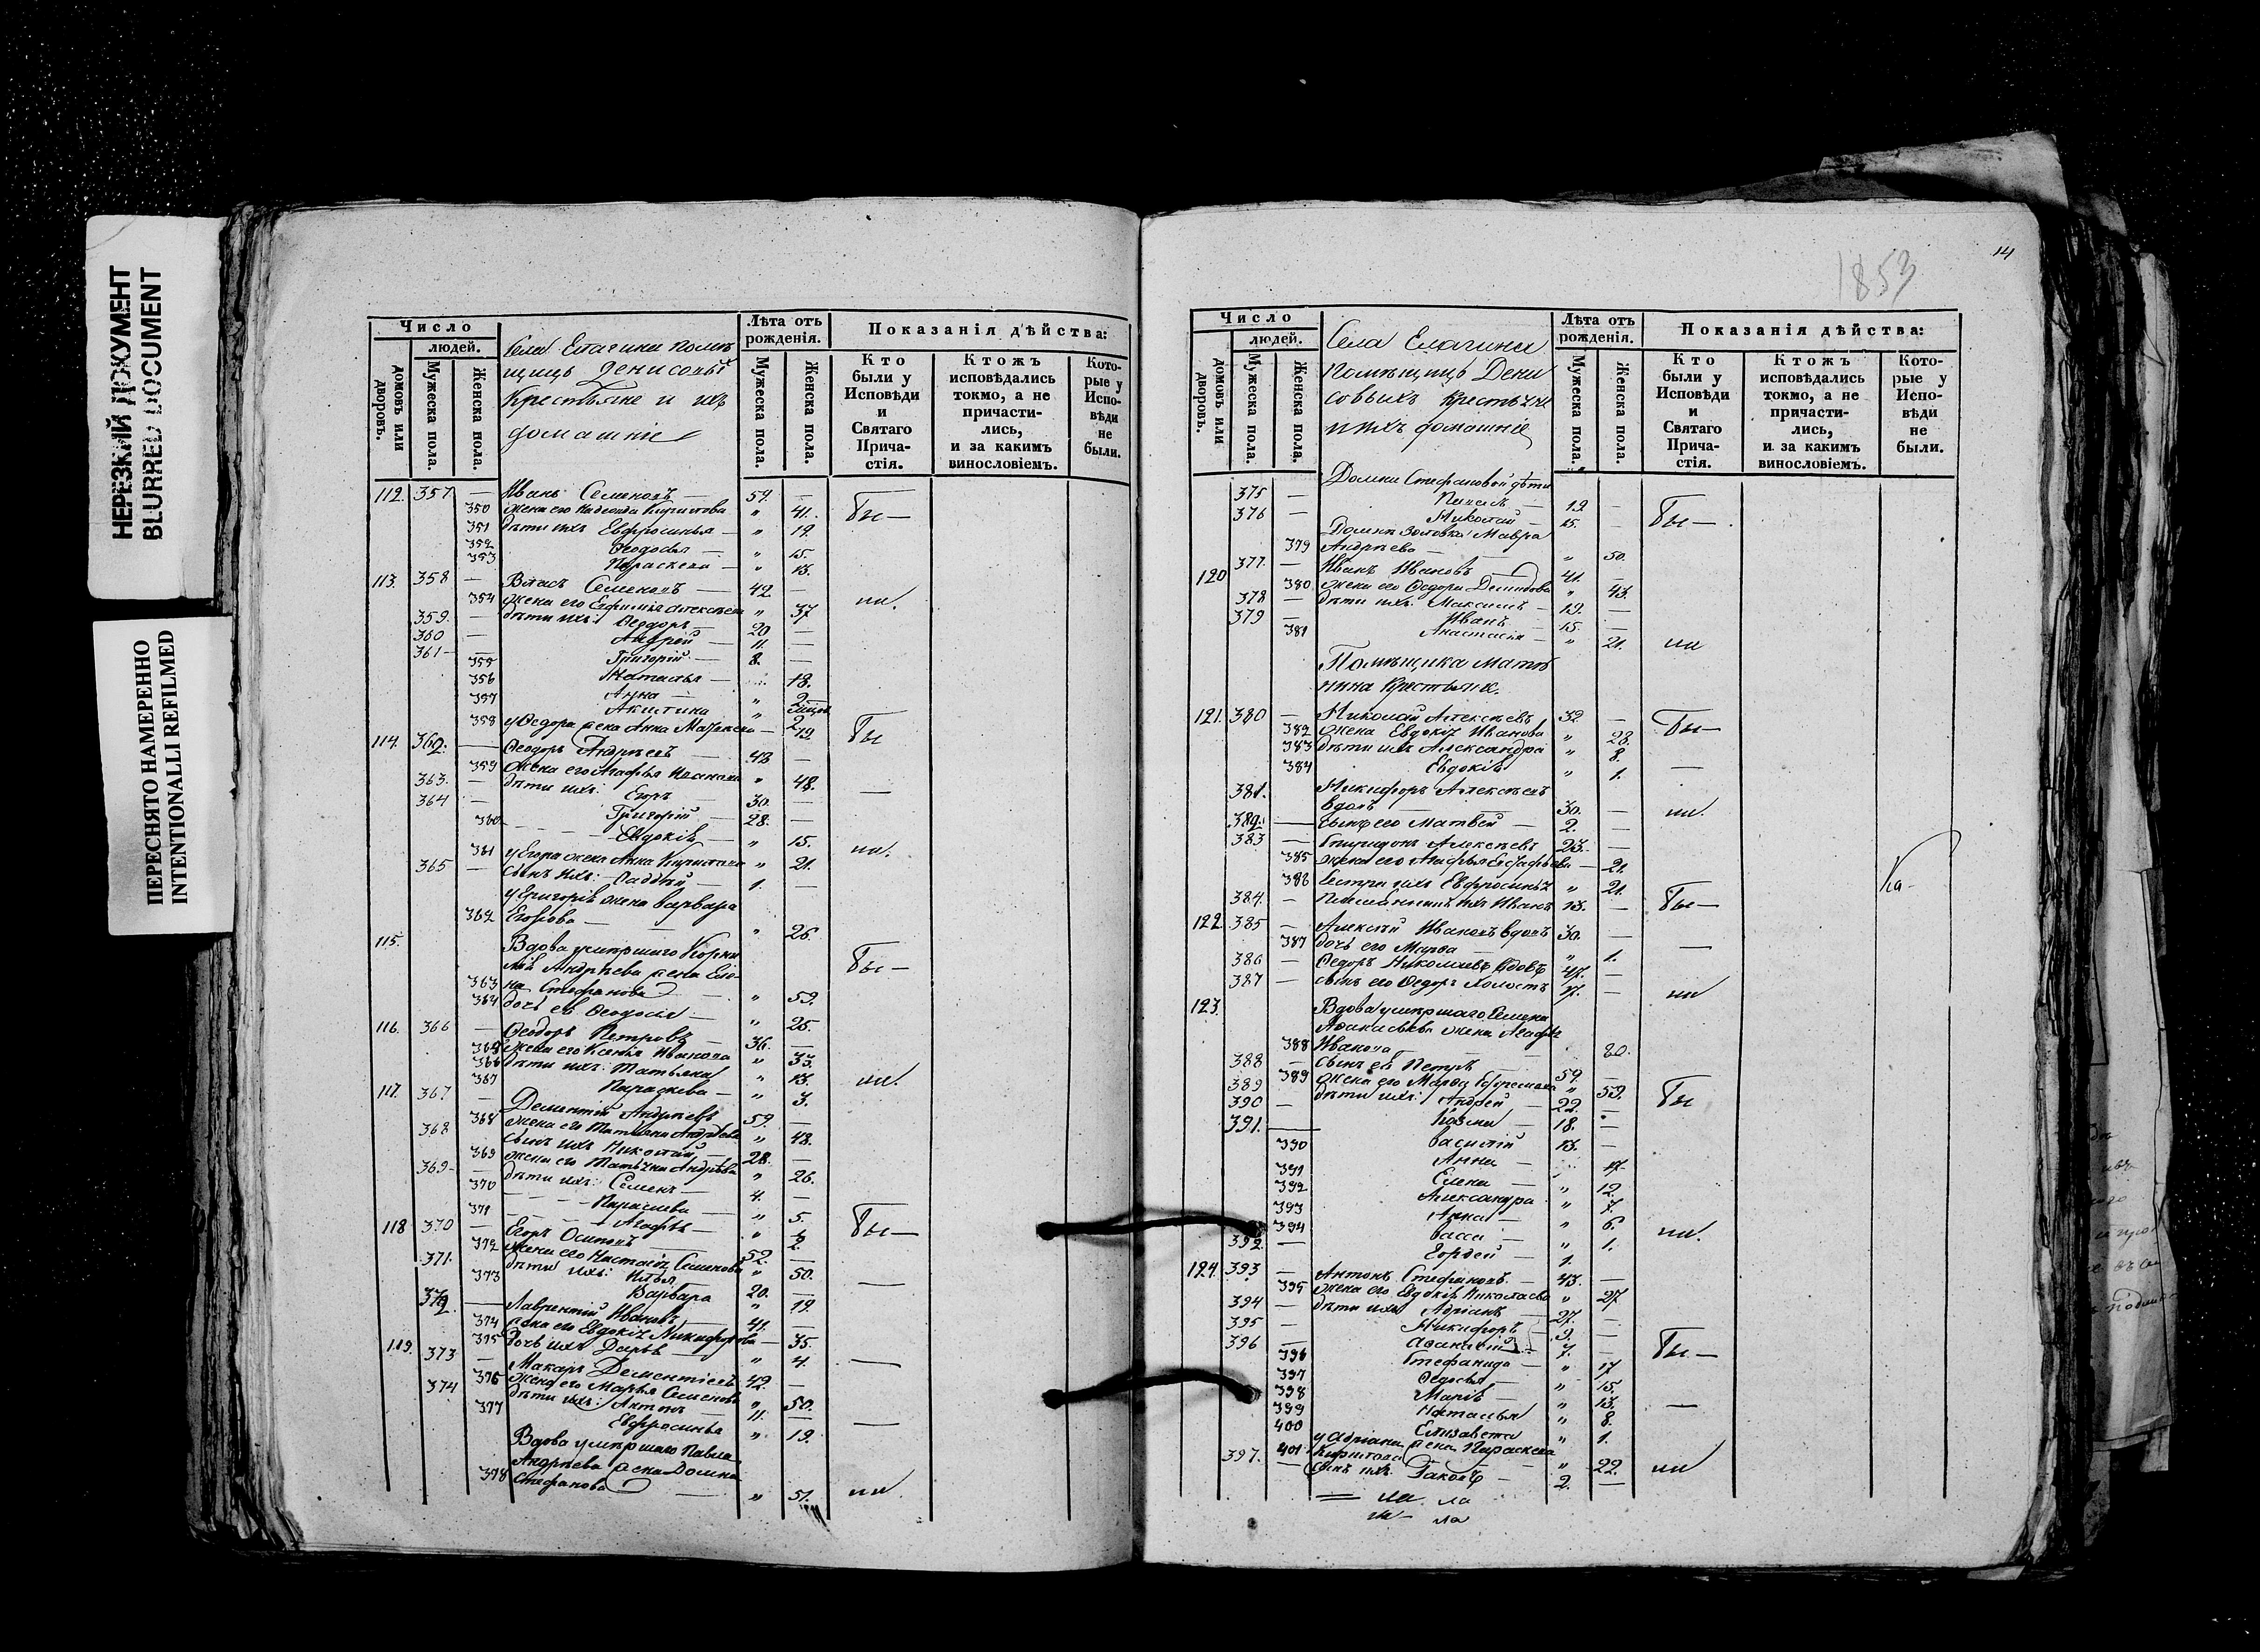 НЕРЕЗКИЙ ДОКУМЕНТ
BLURRED DOCUMENT
ПЕРЕСНЯТО НАМЕРЕННО
INTENTIONALLI REFILMED
Число
людей.
домовъ или дворовъ.
Мужеска пола.
Женска пола.
Села Елагина помѣ
щицъ Денисовы
Крестьяне и ихъ
домашніе
Лѣта отъ рожденія.
Мужеска пола.
Женска пола.
Показанія дѣйства:
Кто были у Исповѣди и Святаго Прича- стія.
Ктожъ исповѣдались токмо, а не причасти- лись, и за какимъ винословіемъ.
Кото- рые у Испо- вѣди не были.
112. 357 — Иванъ Семеновъ — 59. —
350 жена его Надежда Кирилова " 41. Бы —
351 дѣти ихъ Евфросинья — " 19.
352 Ѳеодосья — " 15.
353 Параскева — " 13.
113. 358 — Власъ Семеновъ — 42 —
354 жена его Евфимія Алексѣева " 37 ли.
359. — дѣти ихъ: Ѳеодоръ — 20 —
360 — Андрей — 11. —
361 — Григорій — 8. —
355 Наталья — 18.
356 Анна — "
357 Акилина "
358 у Ѳедора жена Анна — 19. Бы
114. 362. — Ѳеодоръ Андреевъ — 48 —
359 жена его Агафья Иванова " 48.
363. — дѣти ихъ: Егоръ — 30. —
364 — Григорій — 28. —
360 — Евдокія — " 15.
361 у Егора жена Анна Кирилова " 21. ли.
365 — сынъ ихъ: Фаддей — 1. —
у Григорія жена Варвара
362 Егорова — " 26.
115. Вдова умершаго Корни
лія Андрѣева жена Еле- Бы —
363 на Стефанова — " 59.
364 дочь ея Ѳеодосія — " 25.
116. 366 — Ѳеодоръ Петровъ — 36. —
365 жена его Ксенія Иванова " 33.
366 дѣти ихъ: Татьяна " 13. ли.
367 Параскева — " 3.
117. 367 — Дементій Андреевъ 59. —
368 жена его Татьяна Андреева " 48.
368 сынъ ихъ Николай — 28. —
369 жена его Татьяна Андреева " 26.
369 — дѣти ихъ: Семенъ — 4. —
370 Параскева — " 5.
371 Агафья — " 2. Бы —
118 370 — Егоръ Осиповъ — 52. —
372 жена его Настасья Семенова " 50.
371. дѣти ихъ: Илья — 20. —
373 Варвара " 19.
372 — Лаврентій Ивановъ — 41. —
374 жена его Евдокія Никифорова — 35.
375 дочь ихъ Дарья — " 4.
119. 373 — Макаръ Дементіевъ 42. —
376 жена его Марья Семенова " 50.
374 дѣти ихъ: Антонъ — 11. —
377 Евфросинья " 19.
Вдова умершаго Павла
Андрѣева жена Домна
378 Стефанова — " 51. ли.
14
1853
Число
людей.
домовъ или дворовъ.
Мужеска пола.
Женска пола.
Села Елагина
помѣщицъ Дени
совыхъ крестьяне
и ихъ домашніе
Лѣта отъ рожденія.
Мужеска пола.
Женска пола.
Показанія дѣйства:
Кто были у Исповѣди и Святаго Прича- стія.
Ктожъ исповѣдались токмо, а не причасти- лись, и за какимъ винословіемъ.
Кото- рые у Испо- вѣди не были.
Домны Стефановой дѣти
375 — Павелъ — 19 —
376 — Николай — 15. — Бы —
Домны золовка Мавра
379 Андрѣева — " 50.
120 377. — Иванъ Ивановъ 41. —
380 жена его Ѳедора Демидова " 43.
378 — дѣти ихъ: Максимъ — 19. —
379 — Иванъ — 15. —
381 Анастасія — " 21. ли
Помѣщика Матю
нина Крестьяне.
121. 380 — Николай Алексѣевъ 32. —
382 жена Евдокія Иванова " 28. Бы —
383 дѣти ихъ Александра " 8.
384 Евдокія " 1. —
381. Никифоръ Алексѣевъ
вдовъ — 30. — ли.
382. — сынъ его Матвей — 2. —
383 — Спиридонъ Алексѣевъ 23. —
385 жена его Агафья — 21.
386 Сестра ихъ Евфросинья " 21.
384. — Племянникъ ихъ Иванъ 13. — Бы —
122 385 — Алексѣй Ивановъ вдовъ 30. —
387 дочь его Марѳа " 1. —
386 — Ѳедоръ Николаевъ вдовъ 47. —
387 — сынъ его Ѳедоръ холостъ 17. — ли
123. Вдова умершаго Семена
Аѳанасьева жена Агафья
388 Иванова — 80.
388 — сынъ ея Петръ — 59. —
389 жена его Марѳа Ефремова " 53.
389 дѣти ихъ: Андрей — 22. — Бы
390 — Козма — 18. —
391. — Василій 13. —
390 Анна — 17.
391 Елена — " 12.
392 Александра " 7.
393 Анна — " 6.
394 Васса — " 1. ли.
392. — Гордей — 1.
124. 393 — Антонъ Стефановъ — 43. —
395 жена его Евдокія Николаева " 27
394 — дѣти ихъ Адріанъ — 27. —
395 — Никифоръ — 9. —
396 — Аѳанасій 7. — Бы —
396 Стефанида — " 17
397 Ѳедосья — " 15.
398 Марія — " 13.
399 Наталья " 8. —
400 Елизавета " 1.
у Адріана жена Параскева
401 Кирилова — " 22. ли
397. — сынъ ихъ Яковъ — 2. —